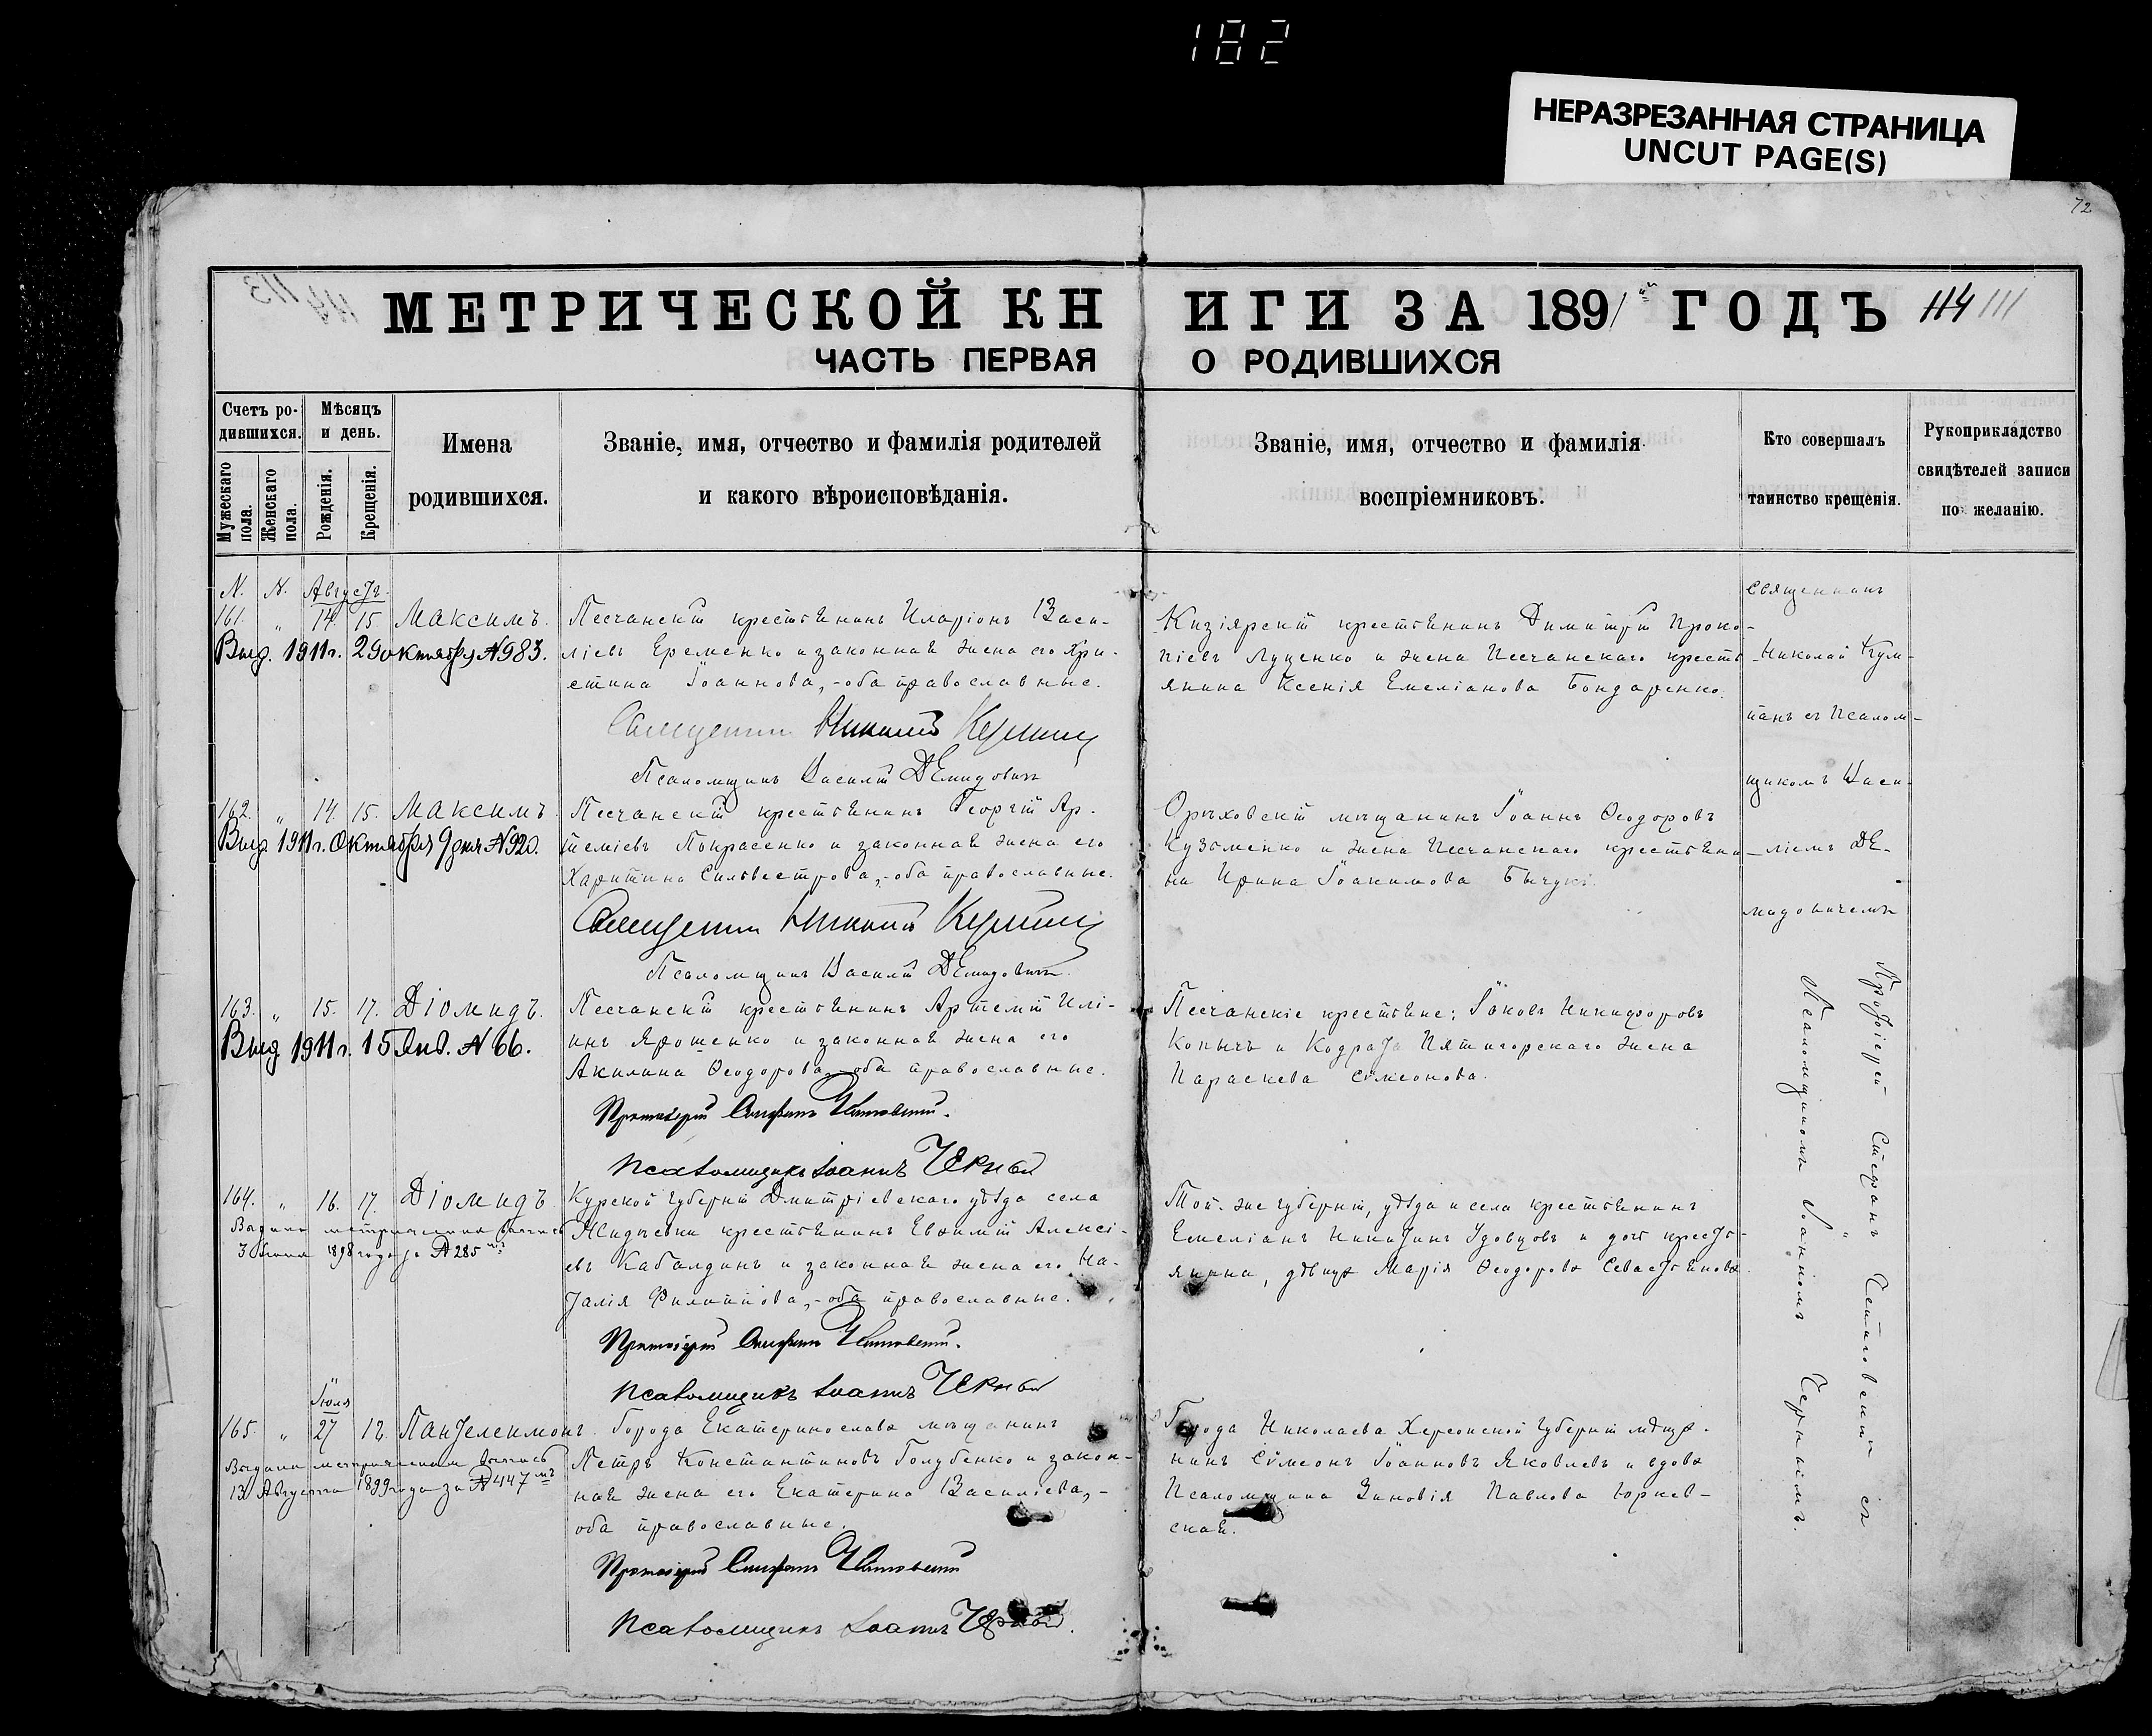 182
НЕРАЗРЕЗАННАЯ СТРАНИЦА
UNCUT PAGE(S)
72
МЕТРИЧЕСКОЙ КНИГИ ЗА 1891й ГОДЪ 114 111
ЧАСТЬ ПЕРВАЯ О РОДИВШИХСЯ
Счетъ родившихся.
Мужескаго пола.
Женскаго пола.
Мѣсяцъ и день.
Рожденія.
Крещенія.
Имена родившихся.
Званіе, имя, отчество и фамилія родителей
и какого вѣроисповѣданія.
Званіе, имя, отчество и фамилія
воспріемниковъ.
Кто совершалъ
таинство крещенія.
Рукоприкладство
свидѣтелей записи
по желанію.
N. N. Августъ
161. „ 14. 15 Максимъ.
Выд. 1911 г. 29 октября №983.
Песчанскій крестьянинъ Иларіонъ Васи-
ліевъ Еременко и законная жена его Хри-
стина Іоаннова,-оба православные.
Священникъ Николай
Псаломщикъ Василій Демидовичъ
Кизіярскій крестьянинъ Димитрій Проко-
піевъ Луценко и жена Песчанскаго кресть
янина Ксенія Емеліанова Бондаренко.
Священникъ
Николай
псалом-
щикомъ Васи-
ліемъ Де-
мидовичемъ
162. „ 14. 15. Максимъ
Выд. 1911 г. Октября 9 дня №920.
Песчанскій крестьянинъ Георгій Ар-
теміевъ Покрасенко и законная жена его
Харитина Силвестрова,-оба православные.
Священникъ Николай
Псаломщикъ Василій Демидовичъ.
Орѣховскій мѣщанинъ Іоаннъ Ѳеодоровъ
Кузьменко и жена Песчанскаго крестьяни
на Ирина Іоакимова
163. „ 15. 17. Діомидъ.
Выд 1911 г. 15 Янв. №66.
Песчанскій крестьянинъ Артемій Илі-
инъ Ярошенко и законная жена его
Акилина Ѳеодорова,-оба православные.
Протоіерей Стефанъ
Псаломщикъ Іоаннъ Черный
Песчанскіе крестьяне: Іаковъ Никифоровъ
Копычъ и Кодрата Пятигорскаго жена
Параскева Сѵмеонова.
Протоіерей Стефанъ съ
Псаломщикомъ Іоанномъ Чернымъ.
164. „ 16. 17. Діомидъ
Выдана метрическая выпись
3 1898 года за №285
Курской губерніи Дмитріевскаго уѣзда села
крестьянинъ Евѳимій Алексі-
евъ Кабалдинъ и законная жена его На-
талія Филиппова,-оба православные.
Протоіерей Стефанъ
Псаломщикъ Іоаннъ Черный
Той-же губерніи, уѣзда и села крестьянинъ
Емеліанъ Никитинъ Удовцовъ и дочь кресть-
янина, дѣвица Марія Ѳеодорова Севастьянова
Іюля
165. „ 27 12. Пантелеимонъ.
Выдана метрическая выпись
13 Августа 1899 года за №447
Города Екатеринослава мѣщанинъ
Петръ Константиновъ Голубенко и закон-
ная жена его Екатерина Василіева,-
оба православные.
Протоіерей Стефанъ
Псаломщикъ Іоаннъ Черный.
Города Николаева Херсонской губерніи мѣща-
нинъ Сѵмеонъ Іоанновъ Яковлевъ и вдова
Псаломщика Зиновія Павлова Юрков-
ская.